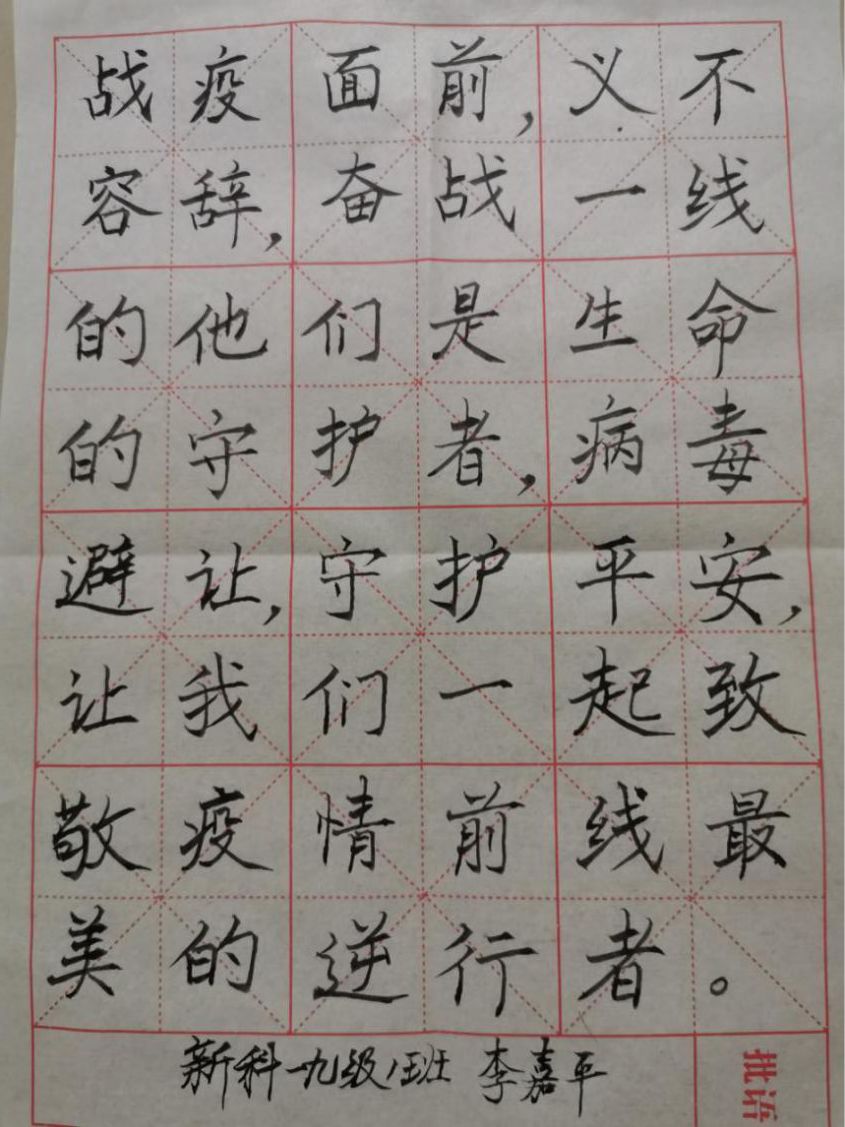 战疫面前,义不
容辞,奋战一线
的他们是生命
的守护者,病毒
避让,守护平安,
让我们一起致
敬疫情前线最
美的逆行者。
新科一九级1班 李嘉平
批语